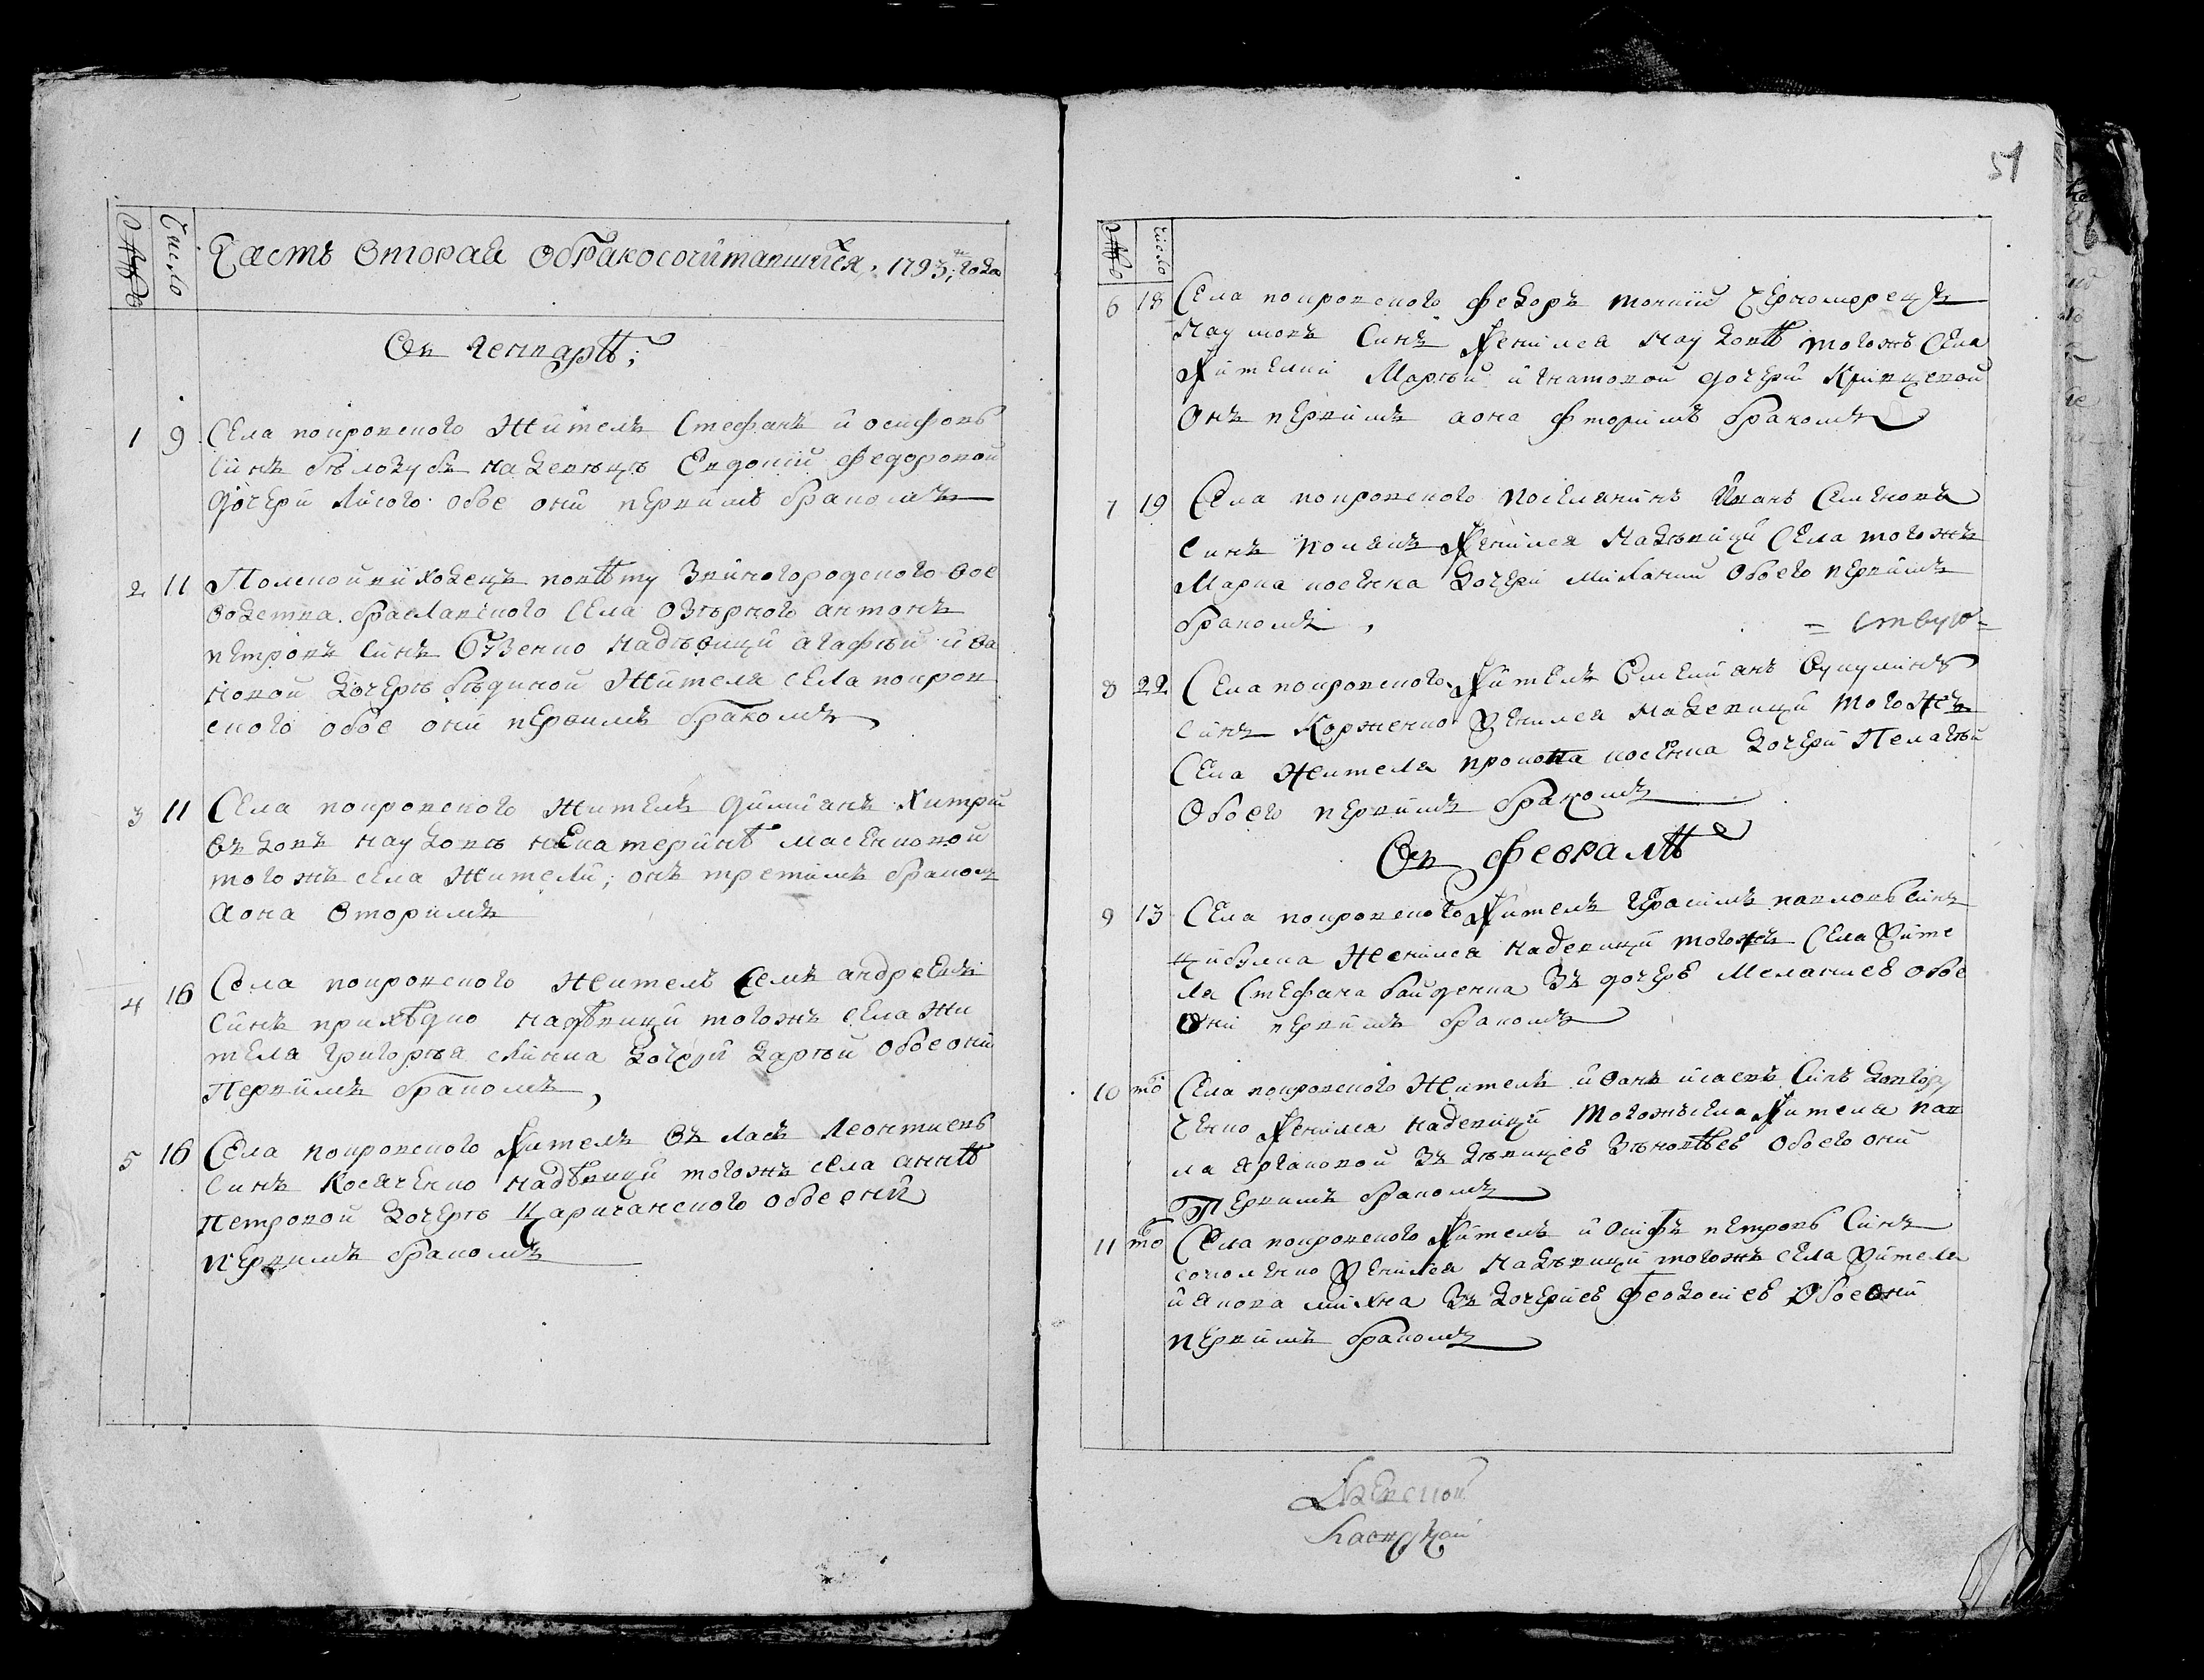 51
№ Число Часть вторая обракосочитавшихся, 1793; года
Въ генварѣ;
1 9 Села покровского житель Стефанъ иосифовъ
синъ бѣлозубъ на девъцѣ Евдокіи федоровой
дочери Лисого обое они первимъ бракомъ
2 11 Полской виходецъ повѣту Звиногородского вое
водства браславского села озѣрного антонъ
петровъ синъ надѣвици агафѣи ива
новой дочерѣ бѣдиной жителя села покров
ского обое они первимъ бракомъ
3 11 Села покровского житель диміянъ хитрій
въдовъ на удовѣ Екатеринѣ масенковой
тогожъ села жители; онъ третимъ бракомъ
а она вторимъ
4 16 Села покровского житель андреевъ
синъ прихѣдко надѣвици тогожъ села жи
теля григорѣя дочери дарѣи обое они
Первимъ бракомъ,
5 16 Села покровского житель Власъ Леонтиевъ
синъ Косяченко надѣвици тогожъ села аннѣ
Петровой дочерѣ Царичанского обое они
первимъ бракомъ
№ Число
6 18 Села покровского феодоръ тонкій Черноморецъ
наумовъ синъ женился на удовѣ тогожъ села
жителки Марѣи игнатовой дочери
онъ первимъ а она фторимъ бракомъ
7 19 Села покровского поселянинъ Иванъ Семеновъ
синъ женился на дѣвици села тогожъ
Марка косенка дочери Миланіи обоего первимъ
бракомъ,
= ствую =
8 22 Села покровского житель Емелиянъ
синъ Корженко женился на девици тогожъ
села жителя прокопа косенка дочери Пелагѣи
Обоего первимъ бракомъ
Въ февралѣ
9 13 Села покровского житель герасимъ павловъ синъ
цибулка женился на девици тогожъ села жите
ля Стефана байденка зъ дочерѣ Меланиев обое
они первимъ бракомъ
10 то Села покровского житель иванъ исаевъ синъ
женился на девици тогожъ села жителя пав
ла зъ дѣвицев Зѣновѣев обоего они
Первимъ бракомъ
11 то Села покровского житель иосифъ петровъ синъ
соколенко женился на дѣвици тогожъ села жителя
иякова зъ дочериев Феодосиев обое они
первимъ бракомъ